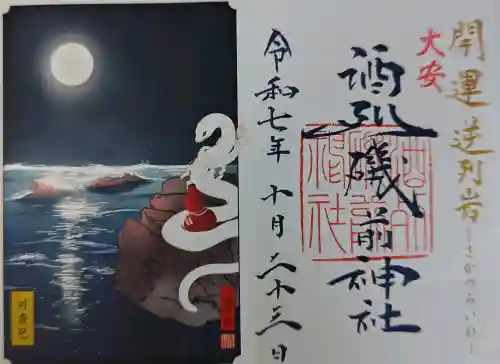 開運 逆列岩
~さかつらいわ~
大安
酒列磯前神社
令和七年 十月 二十三日